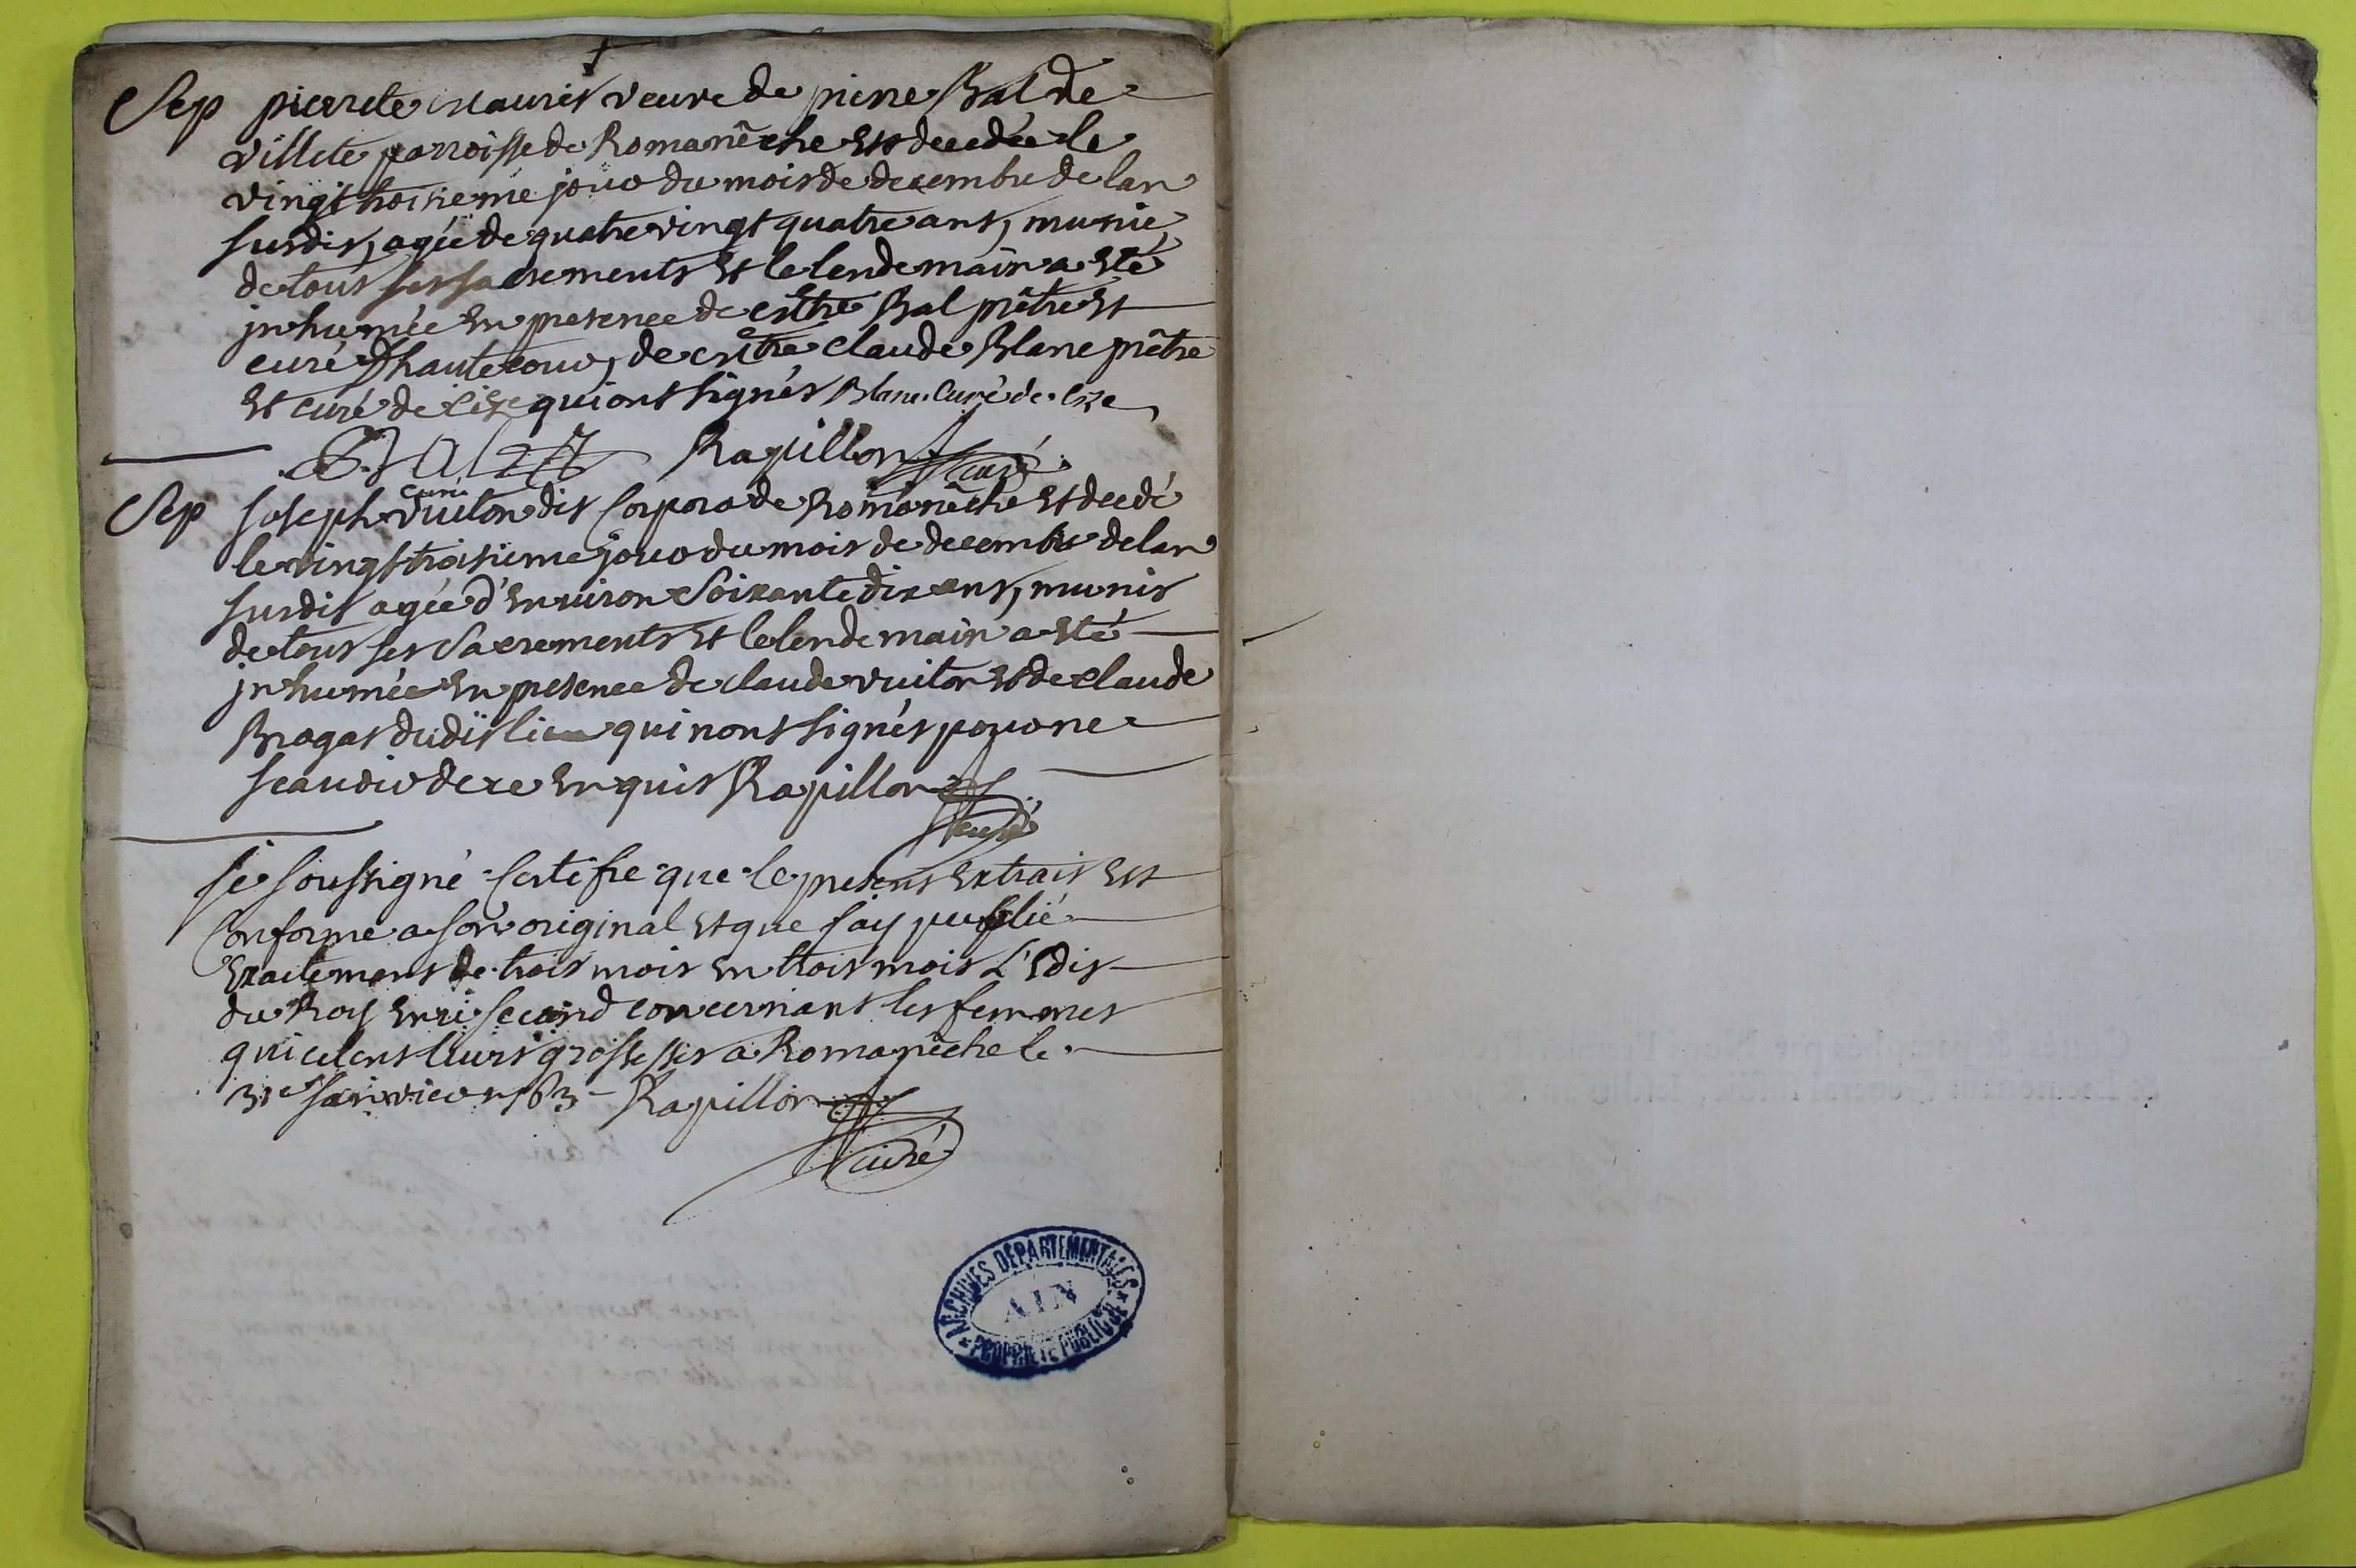 Sep pierrete veuve de pierre Bal de
villete parroisse de Romanêche est decedée le
vingt troisieme jour du mois de decembre de lan
susdit, agée de quatre vingt quatre ans, munie
de tous ses sacrements et le lendemain a eté
jnhumée en presence de Bal prêtre et
curé d'hautecour, de claude Blanc prêtre
et curé de Cize qui ont signés Blanc curé de Cize
Bal Rapillon curé
curé
Sep joseph vuiton dit Corpora de Romanêche et decedé
le vingt troisieme jour du mois de decembre de lan
susdit agée d'environ Soixante dix ans, munis
de tous ses Sacrements et le lendemain a eté
jnhumée en presence de claude vuiton et de claude
Brogat dudit lieu qui nont signés pour ne
scavoir de ce enquis Rapillon
curé
je soussigné certifie que le present extrait est
Conforme a son original et que jay publié
exactement de trois mois en trois mois L'edit
du Roy enri second concernant les femmes
qui celent leurs grossesses a Romanêche le
janvier 1763 Rapillon
curé
ARCHIVES DÉPARTEMENTALES
AIN
PROPRIÉTÉ PUBLIQUE